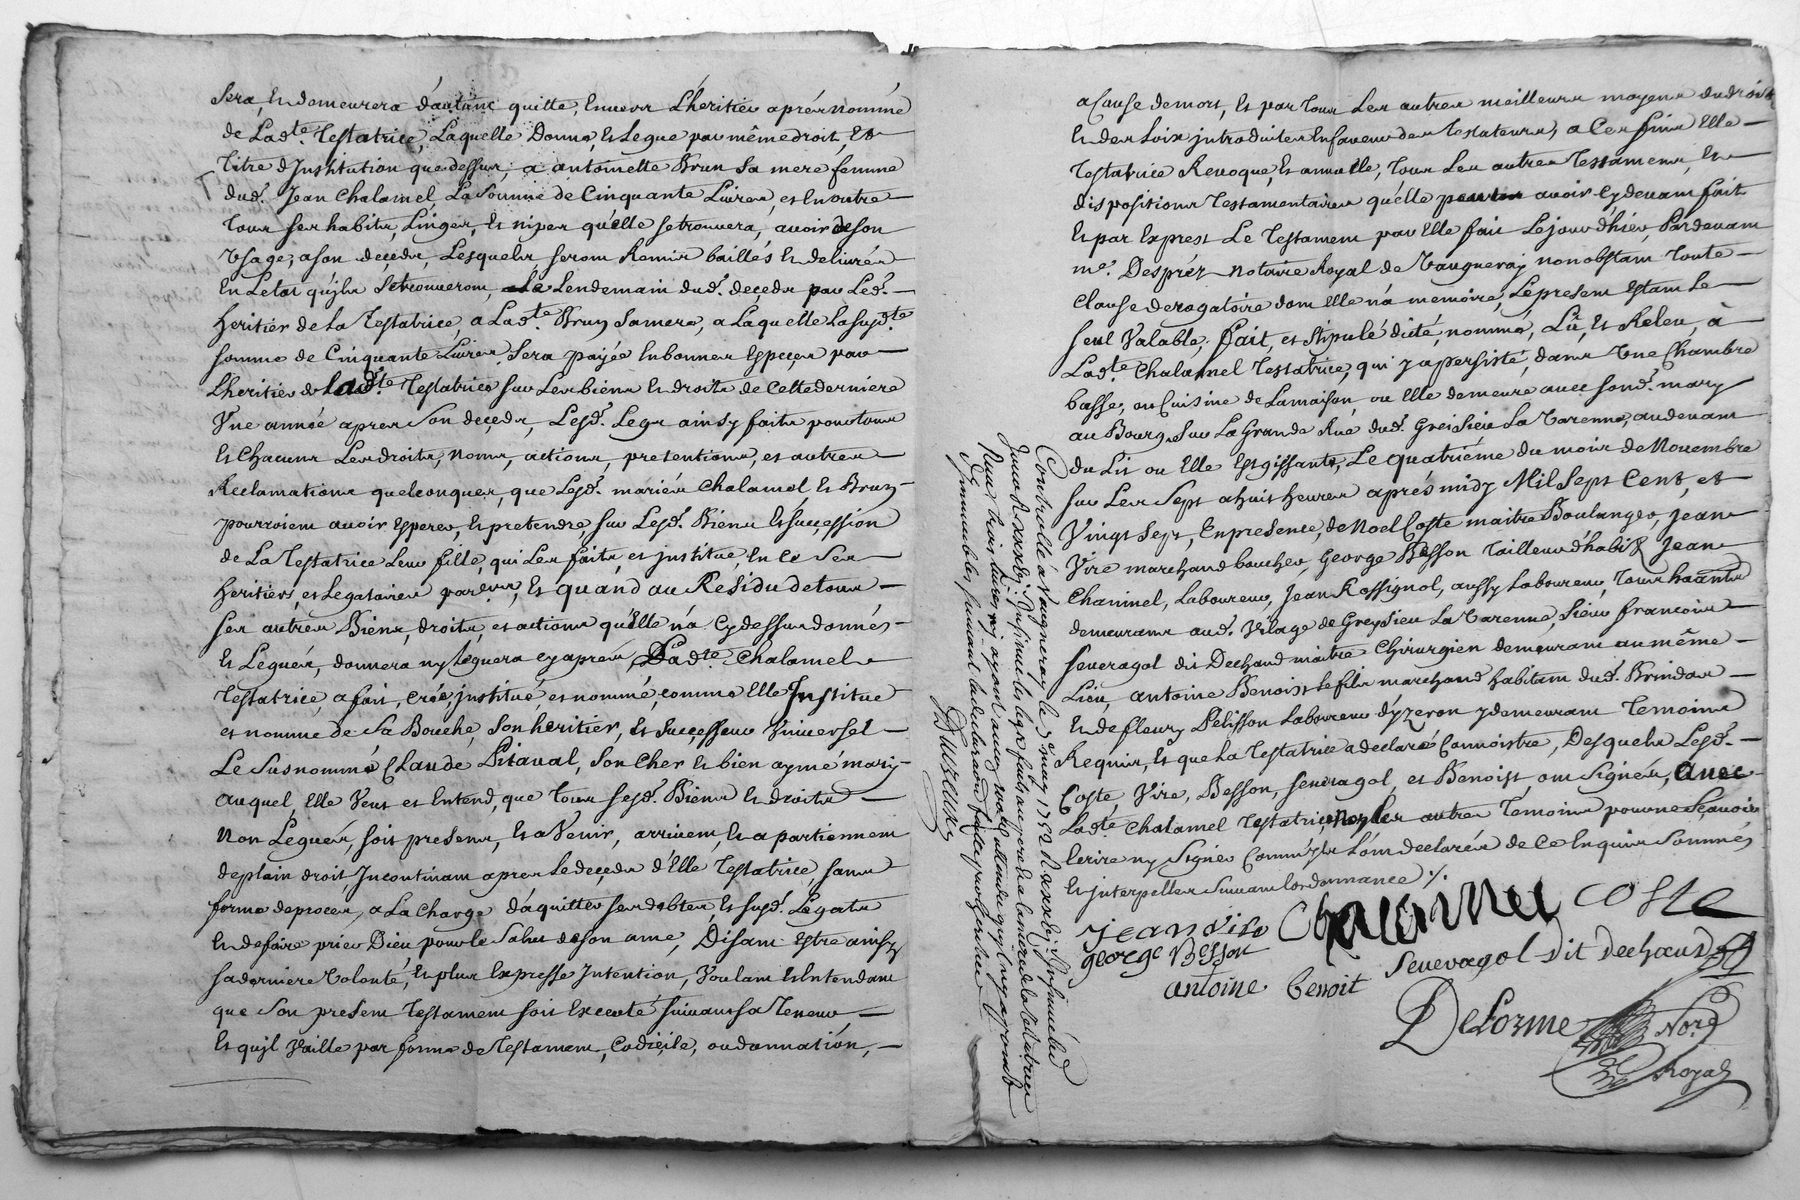 Sera, et demeurera d'autant quitte, envers L'heritier aprés nommé
de Lad.te Testatrice, Laquelle Donne, et Legue par même droit, et
titre d'Institution que dessus, a antoinette Brun sa mere femme
dud. Jean Chalamel, La Somme de Cinquante Livres, et en outre
tous ses habits, Linges, et nipes qu'elle se trouvera, avoir de son
Usage, a son deçeds, Lesquels seront Remis baillés et delivrés
en Letat qu'jls se trouveront, Le Lendemain dud. deçeds par Led.
heritier de la Testatrice, a Lad.te Brun sa mere, a Laquelle La susd.te
somme de Cinquante Livres sera payée en bonnes Espeçes par
L'heritier de Lad.te Testatrice sur Les biens et droits de Cette derniere
Vne année apres Son deçeds, Lesd. Legs ainsy faits pour tous
et Chacuns Les droits, noms, actions, pretentions, et autres
Reclamations quelconques, que Lesd. mariés Chalamel, et Brun
pourroient avoir esperer, et pretendre, sur Lesd. Biens et succession
de La Testatrice Leur fille, qui Les fait, et jnstitue, en ce Ses
heritiers, et Legataires par eux, Et quand au Residu de tous
ses autres Biens, droits, et actions qu'Elle n'a Cy dessus donnés
et Legués, donnera ny Leguera cy aprés, Lad.te Chalamel
Testatrice, a fait, créé, jnstitué, et nommé, comme elle Institue
et nomme de Sa Bouche, Son heritier, et Successeur Vniversel
Le Susnommé Claude Pitaval, Son Cher et bien aymé mary
auquel, Elle Veut et Entend, que tous sesd. Biens et droits
non Legués, soit presens, et a Venir, arrivent, et apartiennent
de plain droit, Incontinant apres Le deçeds d'Elle Testatrice, sans
forme de procés, a La Charge d'aquitter ses debtes, et susd. Legats
et de faire prier Dieu pour le Salut de son ame, Disant Estre ainsy
sa derniere Volonté, et plus Expresse Intention, Voulant et Entendant
que Son present Testament soit Executé suivant sa Teneur
et qu'jl Vaille par forme de Testament, Codiçile, ou donnation,
a Cause de mort, et par tous Les autres meilleurs moyens du droit
et des Loix jntroduites En faveur des Testateurs, a Ces fins Elle
Testatrice Revoque, et annulle, tous Les autres Testamens, et
dispositions Testamentaires qu'elle avoir cy devant fait
et par Exprest Le Testament par Elle fait Le jour d'hier, Pardevant
me. Despréz notaire Royal de Vaugneray nonobstant toute
Clause derogatoire dont Elle n'a memoire, Le present Estant Le
seul Valable, Fait, et stipulé dicté, nommé, Lû, et Releu, à
Lad.te Chalamel Testatrice, qui y a persisté, dans Vne Chambre
basse, ou Cuisine de La maison, ou Elle demeure avec sond. mary
au Bourg, Sur La Grande Rue dud. Greisieu La Varenne, au devant
du Lit ou Elle Est gissante, Le quatriéme du mois de Novembre
sur Les Sept a huit heures aprés midy Mil Sept Cent, et
Vingt Sept, En presence, de Noel Coste maitre Boulanger, Jean
Vire marchand boucher, George Besson Tailleur d'habits Jean
Chaninel, Laboureur, Jean Rossignol, aussy Laboureur, tous haants
demeurans aud. Vilage de Greysieu La Varenne, Sieur francois
severagol dit Dechaud maitre Chirurgien demeurant au même
Lieu, antoine Benoist le fils marchand habitant dud. Brindas
et de fleury Pelisson Laboureur d'yzeron y demeurant Temoins
Requis, et que La Testatrice a declaré Connoistre, Desquels Lesd.
Coste, Vire, Besson, severagol, et Benoist ont signés, avec
Lad.te Chalamel Testatrice, non les autres Temoins pour ne Sçavoir
Ecrire ny Signer Comm'jls L'ont declarés de Ce Enquis Sommés
et jnterpellés suivant L'ordonnance ./.
jean vire Chalamel Coste
george Besson
antoine benoit Severagol dit dechaud
Delorme No.re
Royal
Controllé à Vaugneray le